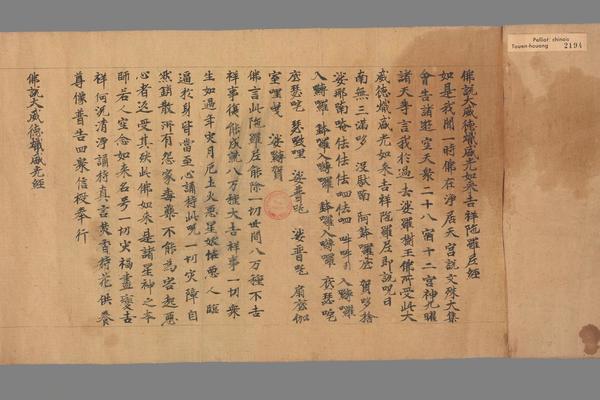 佛說大威德熾盛光如來吉祥陀羅尼經
如是我聞一時佛在淨居天宮說文殊大集
會告諸遊空天衆二十八宿十二宮神九曜
諸天等言我於過去娑羅樹王佛所受此大
威德熾盛光如來吉祥陀羅尼即說呪曰
南無三滿哆 沒馱喃 阿鉢囉底 賀哆捨
娑那喃唵佉佉佉呬佉呬 吽吽 入嚩囉
入嚩囉 鉢囉入嚩囉 鉢囉入嚩囉 底瑟吒
底瑟吒 瑟致哩 娑普吒 娑普吒 扇底伽
室哩曳 娑嚩賀
佛言此陀羅尼能除一切世間八万種不吉
祥事復能成就八万種大吉祥事一切衆
生如過年灾月厄土火惡星妬怪惡人臨
逼於身皆當至心誦持此呪一切灾障自
然銷散所有怨家毒藥不能為害起惡
心者返受其殃此佛如來是諸星神之本
師若人念如來名号一切灾禍盡變吉
祥何況清淨誦持真言焚香持花供養
尊像普告四衆信授奉行
佛說大威德熾盛光經
Pelliot chinois
Touen-houang 2194